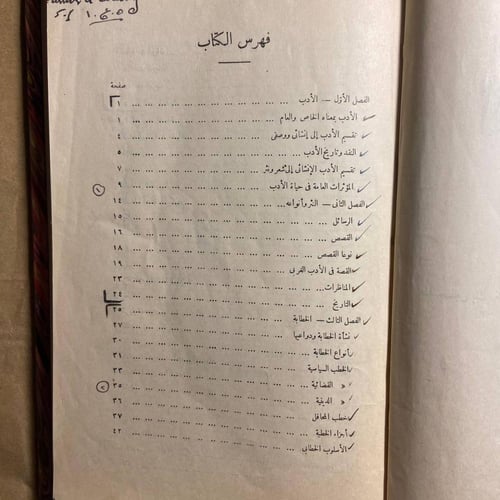 فهرس الكتاب
صفحة
الفصل الأول — الأدب ... ... ... ... ... ... ... ... ١
الأدب بمعناه الخاص والعام ... ... ... ... ... ... ١
تقسيم الأدب إلى إنشائى ووصفى ... ... ... ... ... ٤
النقد وتاريخ الأدب ... ... ... ... ... ... ... ٥
تقسيم الأدب الإنشائى إلى شعر ونثر ... ... ... ... ٧
المؤثرات العامة فى حياة الأدب ... ... ... ... ... ٩
الفصل الثانى — النثر وأنواعه ... ... ... ... ... ... ١٤
الرسائل ... ... ... ... ... ... ... ... ١٥
القصص ... ... ... ... ... ... ... ... ١٦
نوعا القصص ... ... ... ... ... ... ... ١٨
القصة فى الأدب العربى ... ... ... ... ... ... ١٩
المناظرات ... ... ... ... ... ... ... ... ٢٣
التاريخ ... ... ... ... ... ... ... ... ٢٤
الفصل الثالث — الخطابة ... ... ... ... ... ... ... ٢٥
نشأة الخطابة ودواعيها ... ... ... ... ... ... ٢٧
أنواع الخطابة ... ... ... ... ... ... ... ٣٠
الخطب السياسية ... ... ... ... ... ... ... ٣١
« القضائية ... ... ... ... ... ... ... ٣٣
« الدينية ... ... ... ... ... ... ... ٣٥
خطب المحافل ... ... ... ... ... ... ... ٣٦
أجزاء الخطبة ... ... ... ... ... ... ... ٣٧
الأسلوب الخطابى ... ... ... ... ... ... ... ٤٢